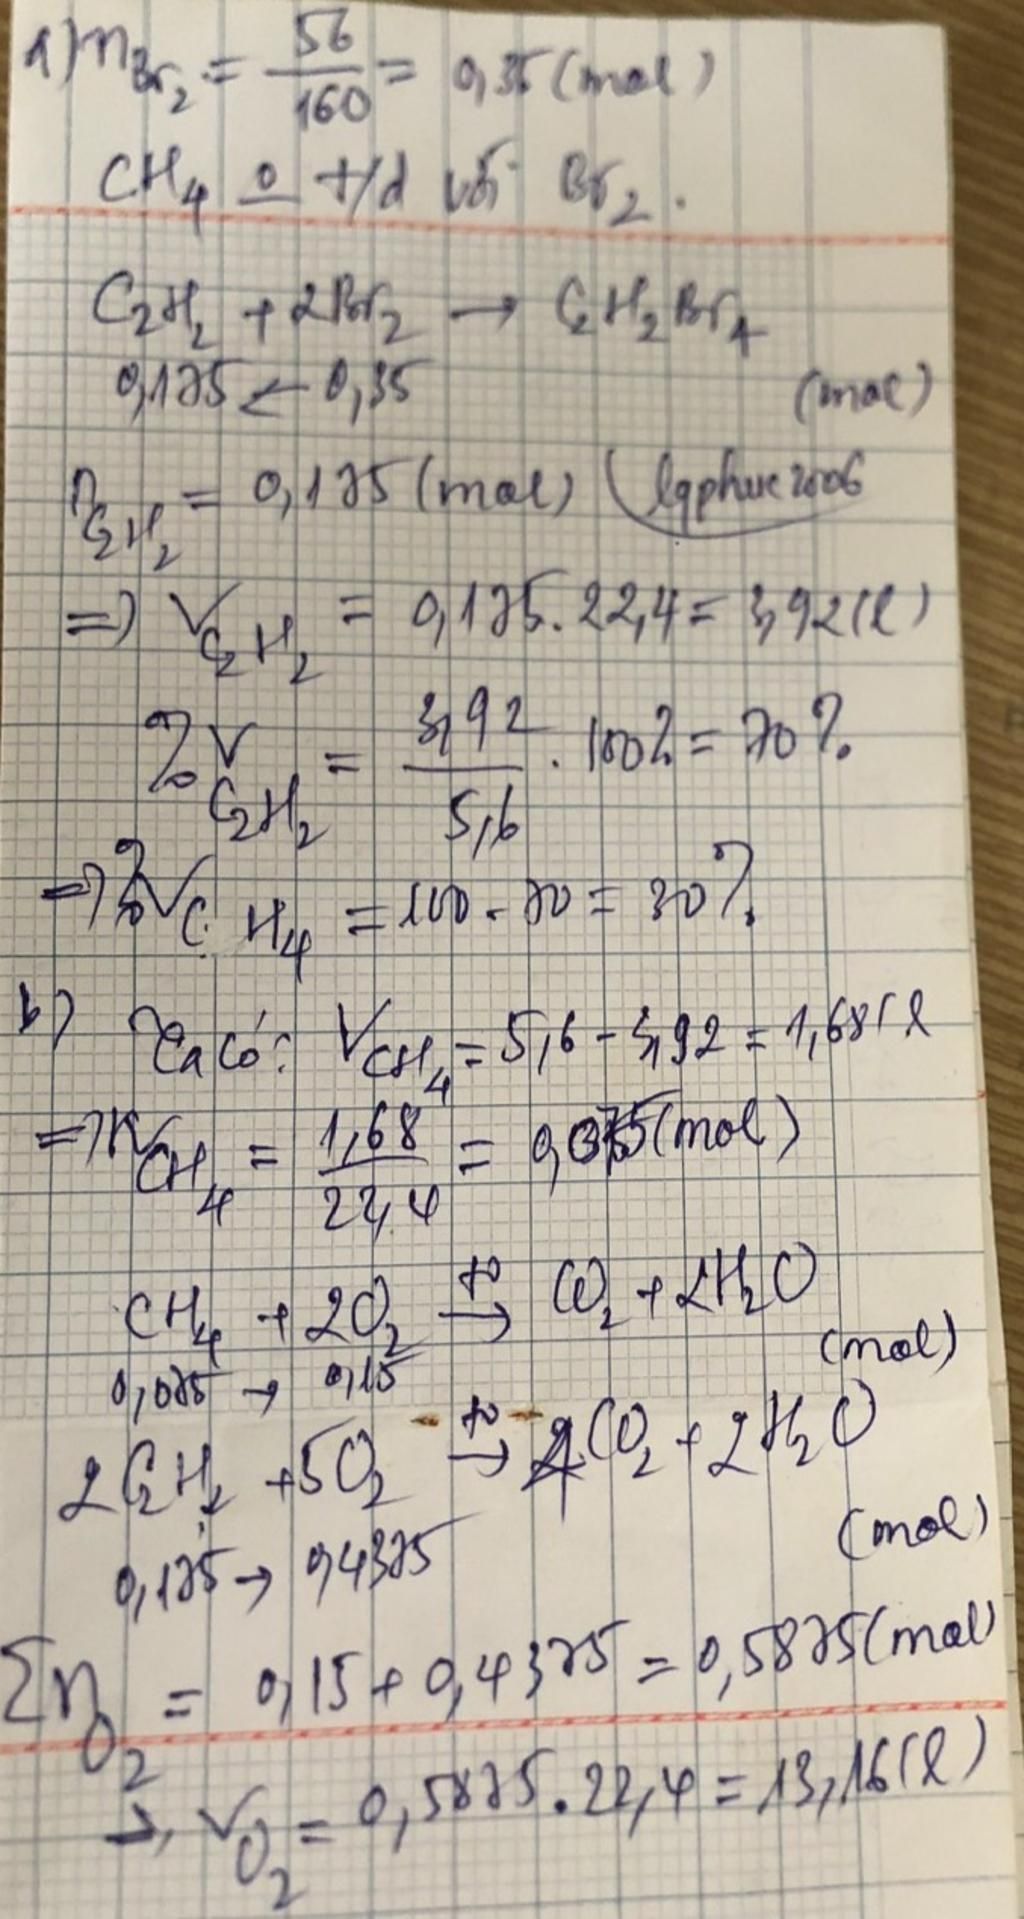 a) nBr₂ = 56/160 = 0,35 (mol)
CH₄ o t/d với Br₂.
C₂H₂ + 2Br₂ → C₂H₂Br₄
0,175 ← 0,35 (mol)
nC₂H₂ = 0,175 (mol) lqphuc2006
=) VC₂H₂ = 0,175 . 22,4 = 3,92 (l)
%VC₂H₂ = 3,92/5,6 . 100% = 70%
=) %VCH₄ = 100 - 70 = 30%.
b) Ta có: VCH₄ = 5,6 - 3,92 = 1,68 (l
=) nCH₄ = 1,68/22,4 = 0,075 (mol)
CH₄ + 2O₂ t⁰→ CO₂ + 2H₂O
0,075 → 0,15 (mol)
2C₂H₂ + 5O₂ t⁰→ 4CO₂ + 2H₂O
0,175 → 0,4375 (mol)
ΣnO₂ = 0,15 + 0,4375 = 0,5875 (mol)
→ VO₂ = 0,5875 . 22,4 = 13,16 (l)